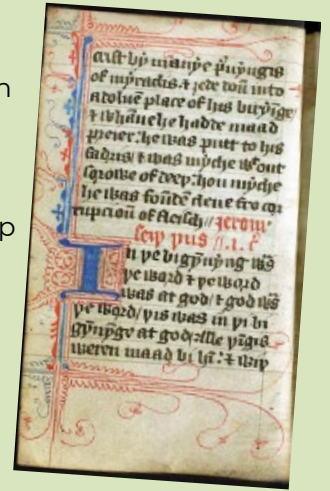 crist bi manye preuyngis
of myraclis. & ȝede doun into
a doluen place of his buryinge
& whanne he hadde maad
preier: he was putt to his
fadris/ & was myche wtout
sorowe of deeþ: hou myche
he was founden clene fro cor
rupcioun of fleisch // Jerom
seiþ þus // .1. c
In þe bigynnyng was
þe word & þe word
was at god/ & god was
þe word/ þis was in þe bi
gynnynge at god/ alle þingis
weren maad bi him: & wiþ
n
p